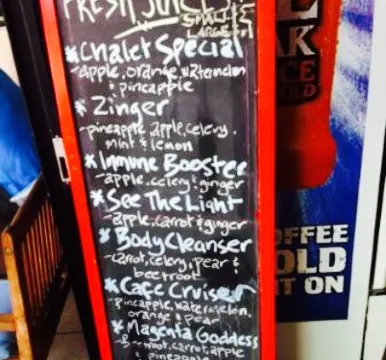 FRESH JUICES
SMALL
LARGE
*Chalet Special
-apple, orange, watermelon
& pineapple
*Zinger
-pineapple, apple, celery,
mint & lemon
*Immune Booster
-apple, celery & ginger
*See The Light
-apple, carrot & ginger
*Body Cleanser
-carrot, celery, pear &
beetroot
*Cafe Cruiser
-pineapple, watermelon,
orange & pear
*Magenta Goddess
carrot, apple
& pineapple
AK
CE
D
FFEE
OLD
T ON